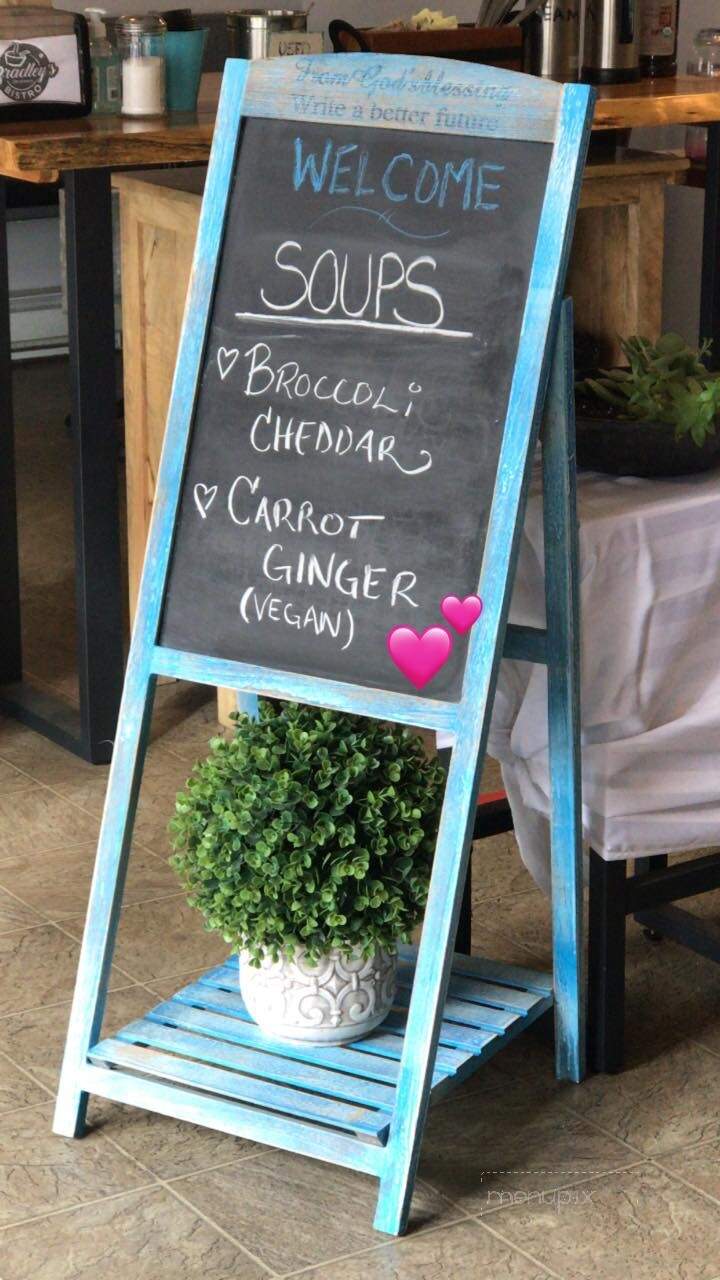 Bradley's
BISTRO
USED
From God's blessing
Write a better future
WELCOME
SOUPS
BROCCOLI
CHEDDAR
CARROT
GINGER
(VEGAN)
menupix